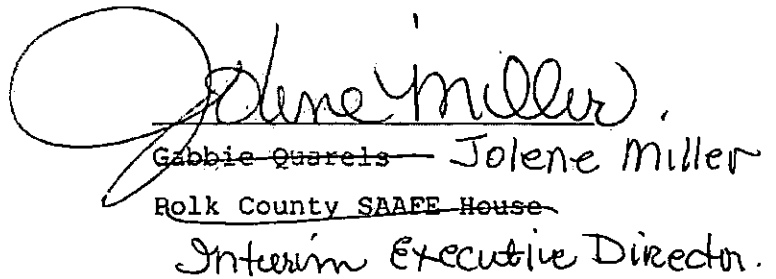 Jolene Miller.
Gabbie Quarels Jolene Miller
Polk County SAAFE House
Interim Executive Director.